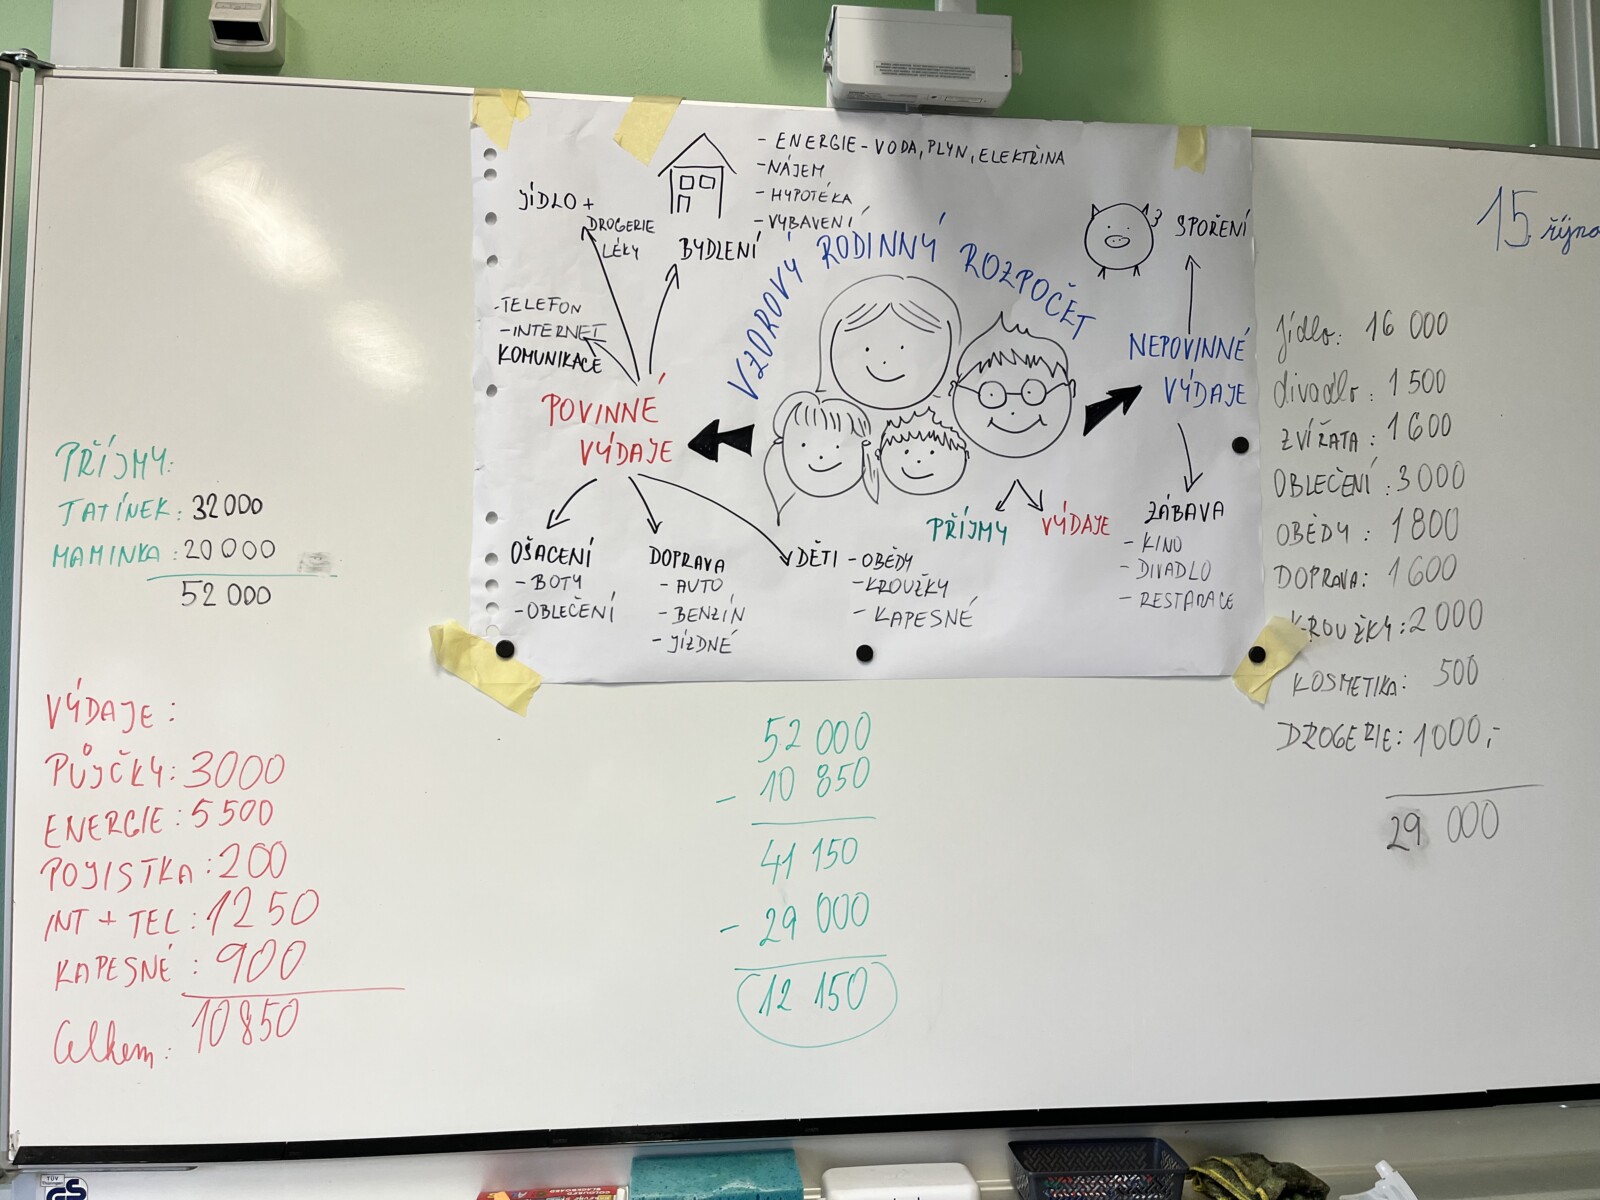 15 října
- ENERGIE - VODA, PLYN, ELEKTŘINA
- NÁJEM
- HYPOTÉKA
- VYBAVENÍ
BYDLENÍ
JÍDLO +
DROGERIE
LÉKY
- TELEFON
- INTERNET
KOMUNIKACE
VZOROVÝ RODINNÝ ROZPOČET
SPOŘENÍ
NEPOVINNÉ
VÝDAJE
POVINNÉ
VÝDAJE
PŘÍJMY
VÝDAJE
ZÁBAVA
- KINO
- DIVADLO
- RESTARACE
OŠACENÍ
- BOTY
- OBLEČENÍ
DOPRAVA
- AUTO
- BENZÍN
- JÍZDNÉ
DĚTI - OBĚDY
- KROUŽKY
- KAPESNÉ
PŘÍJMY:
TATÍNEK: 32000
MAMINKA: 20000
52 000
VÝDAJE:
PŮJČKY: 3000
ENERGIE: 5500
POJISTKA: 200
INT + TEL: 1250
KAPESNÉ: 900
Celkem: 10850
52 000
- 10 850
41 150
- 29 000
12 150
Jídlo: 16 000
divadlo: 1 500
ZVÍŘATA: 1600
OBLEČENÍ: 3000
OBĚDY: 1800
DOPRAVA: 1600
KROUŽKY: 2000
KOSMETIKA: 500
DROGERIE: 1000,-
29 000
TÜV
GS